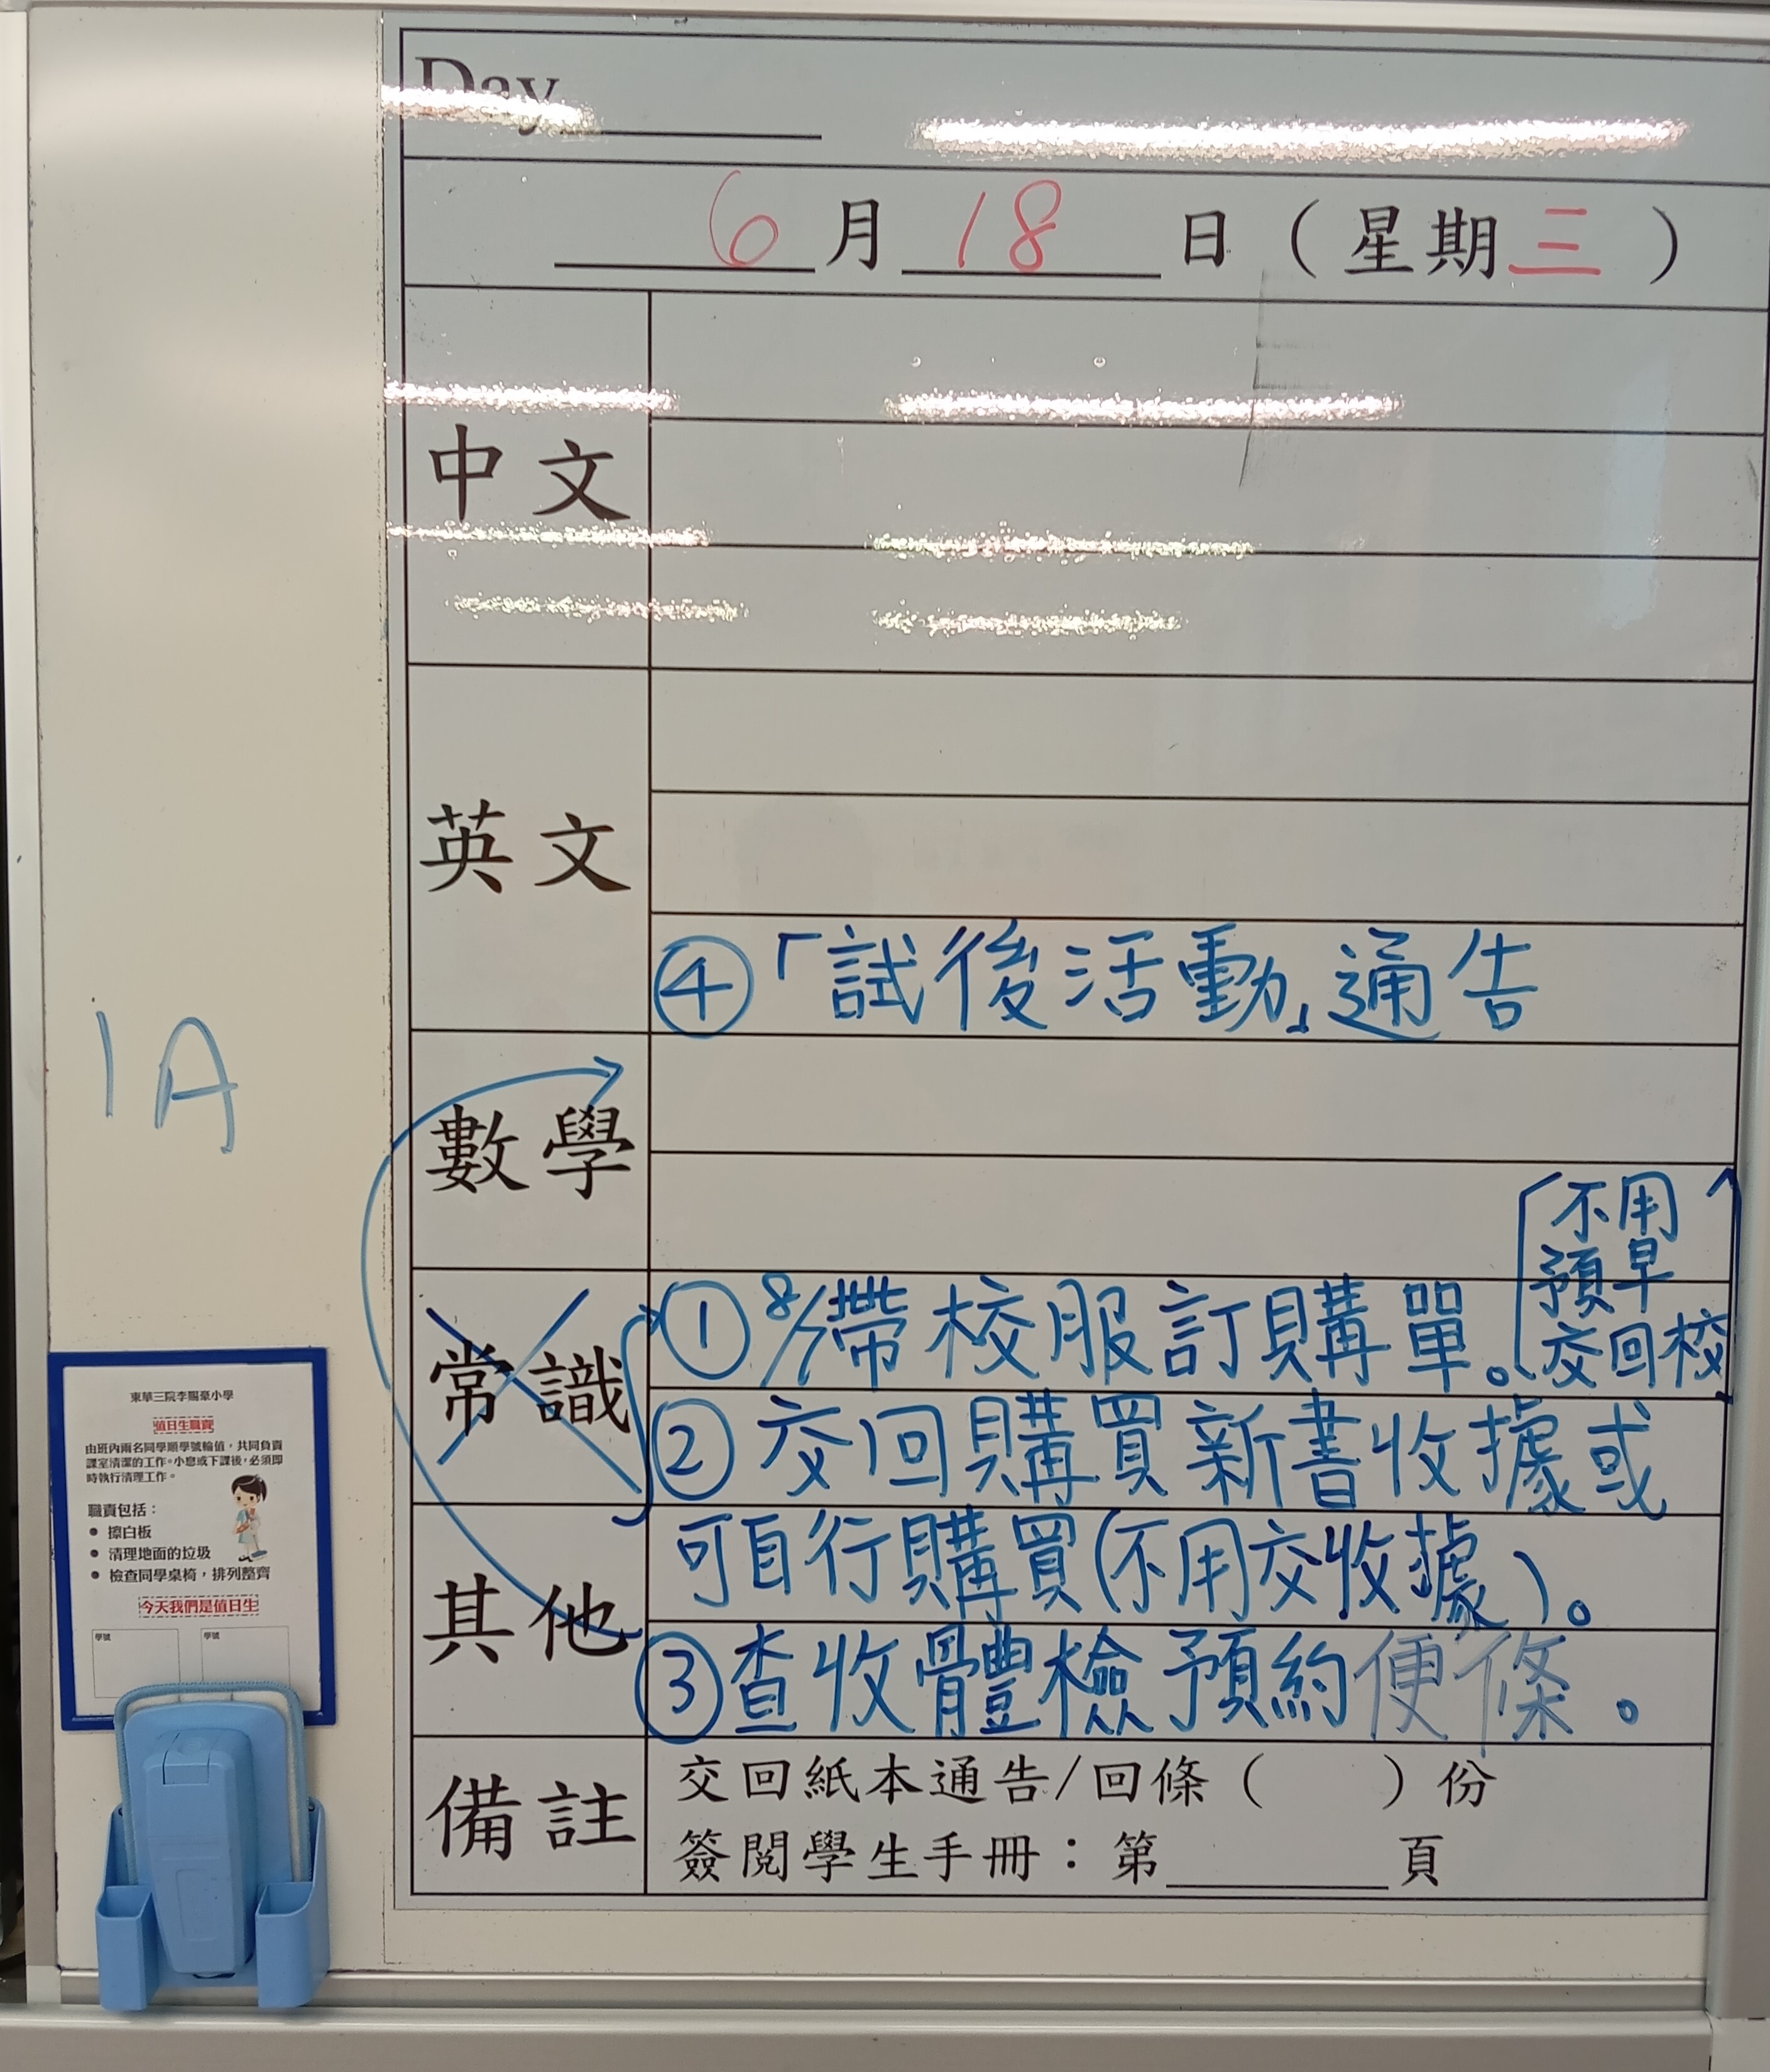 Day
6月18日（星期三）
中文
英文
④「試後活動」通告
數學
不用
預早
交回校
常識
① 8/7帶校服訂購單。
②交回購買新書收據或
其他
可自行購買(不用交收據)。
③查收體檢預約便條。
備註
交回紙本通告/回條（　　）份
簽閱學生手冊：第＿＿＿頁
1A
東華三院李賜豪小學
值日生職責
由班內兩名同學順學號輪值，共同負責
課室清潔的工作。小息或下課後，必須即
時執行清理工作。
職責包括：
● 擦白板
● 清理地面的垃圾
● 檢查同學桌椅，排列整齊
今天我們是值日生
學號 學號